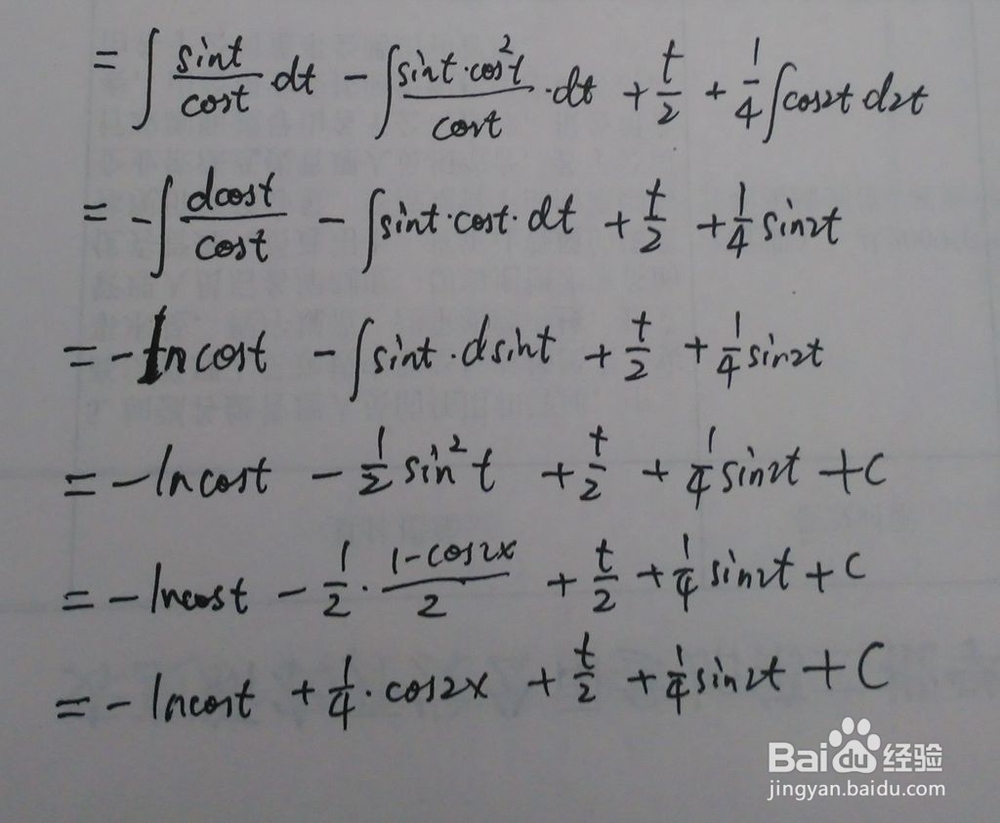 = ∫ sint/cost dt − ∫ sint·cos²t/cost ·dt + t/2 + 1/4 ∫cos2t d2t
= −∫ dcost/cost − ∫sint·cost·dt + t/2 + 1/4 sin2t
= −lncost − ∫sint·dsint + t/2 + 1/4 sin2t
= −lncost − 1/2 sin²t + t/2 + 1/4 sin2t + C
= −lncost − 1/2 · 1−cos2x/2 + t/2 + 1/4 sin2t + C
= −lncost + 1/4 · cos2x + t/2 + 1/4 sin2t + C
Baidu经验
jingyan.baidu.com